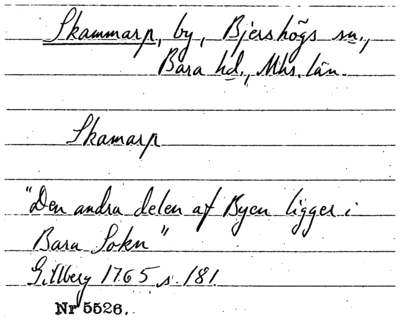 Skammarp, by, Bjershögs sn.,
Bara hd., Mhs. län.
Skamarp
"Den andra delen af Byen ligger i
Bara Sokn"
Gillberg 1765 s. 181.
Nr 5526.